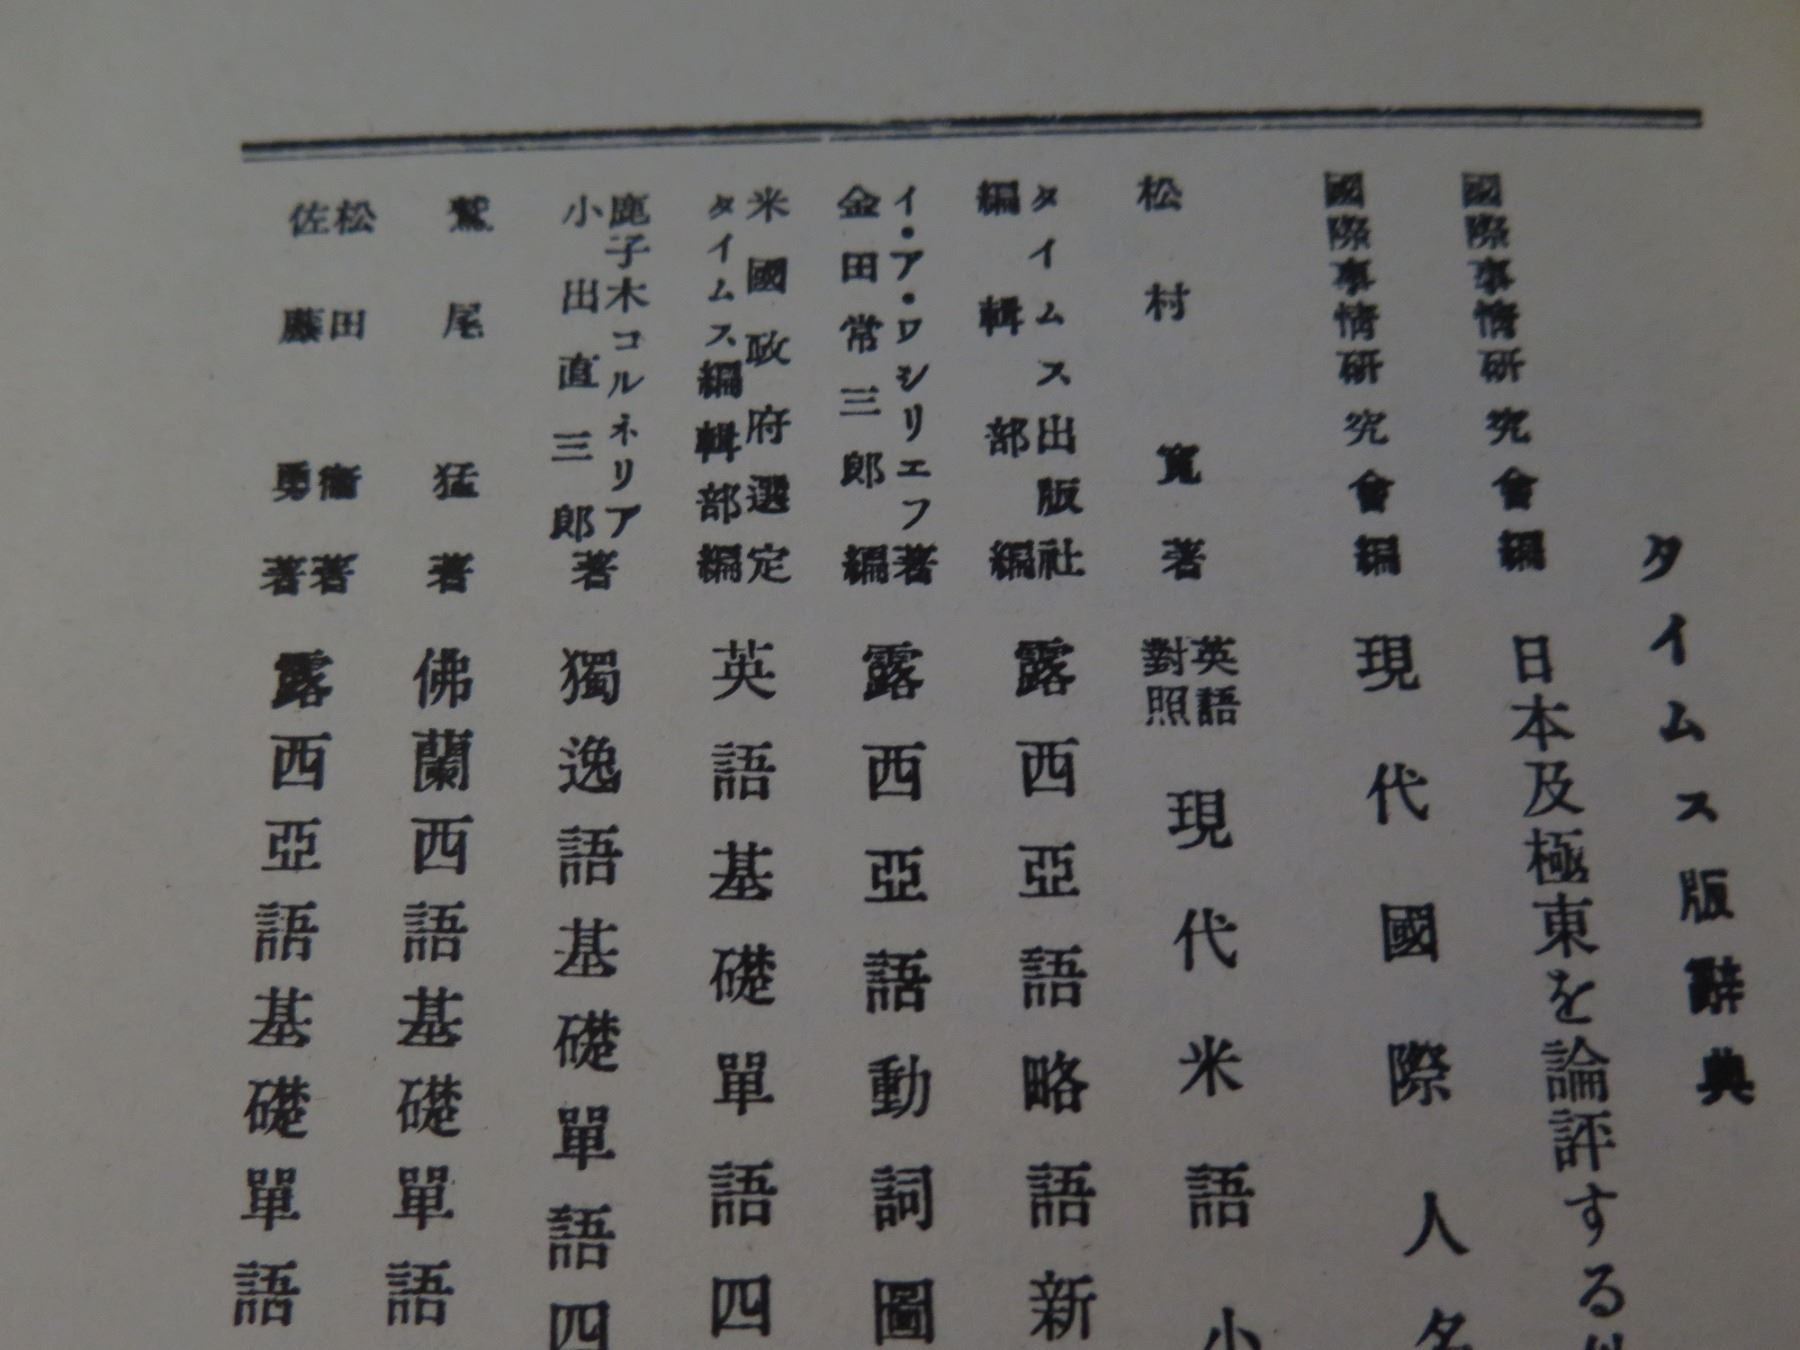 タイムス版辭典
國際事情研究會編 日本及極東を論評する
國際事情研究會編 現代國際人名
松村寬著 英語對照 現代米語小
タイムス出版社編輯部編 露西亞語略語新
イ・ア・ワシリエフ著 金田常三郎編 露西亞語動詞圖
米國政府選定 タイムス編輯部編 英語基礎單語四
鹿子木コルネリア 小出直三郎著 獨逸語基礎單語四
鷲尾猛著 佛蘭西語基礎單語
松田衞著 佐藤勇著 露西亞語基礎單語